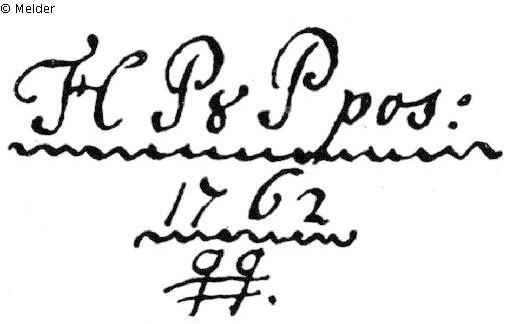 © Melder
H P & P pos:
1762
99.